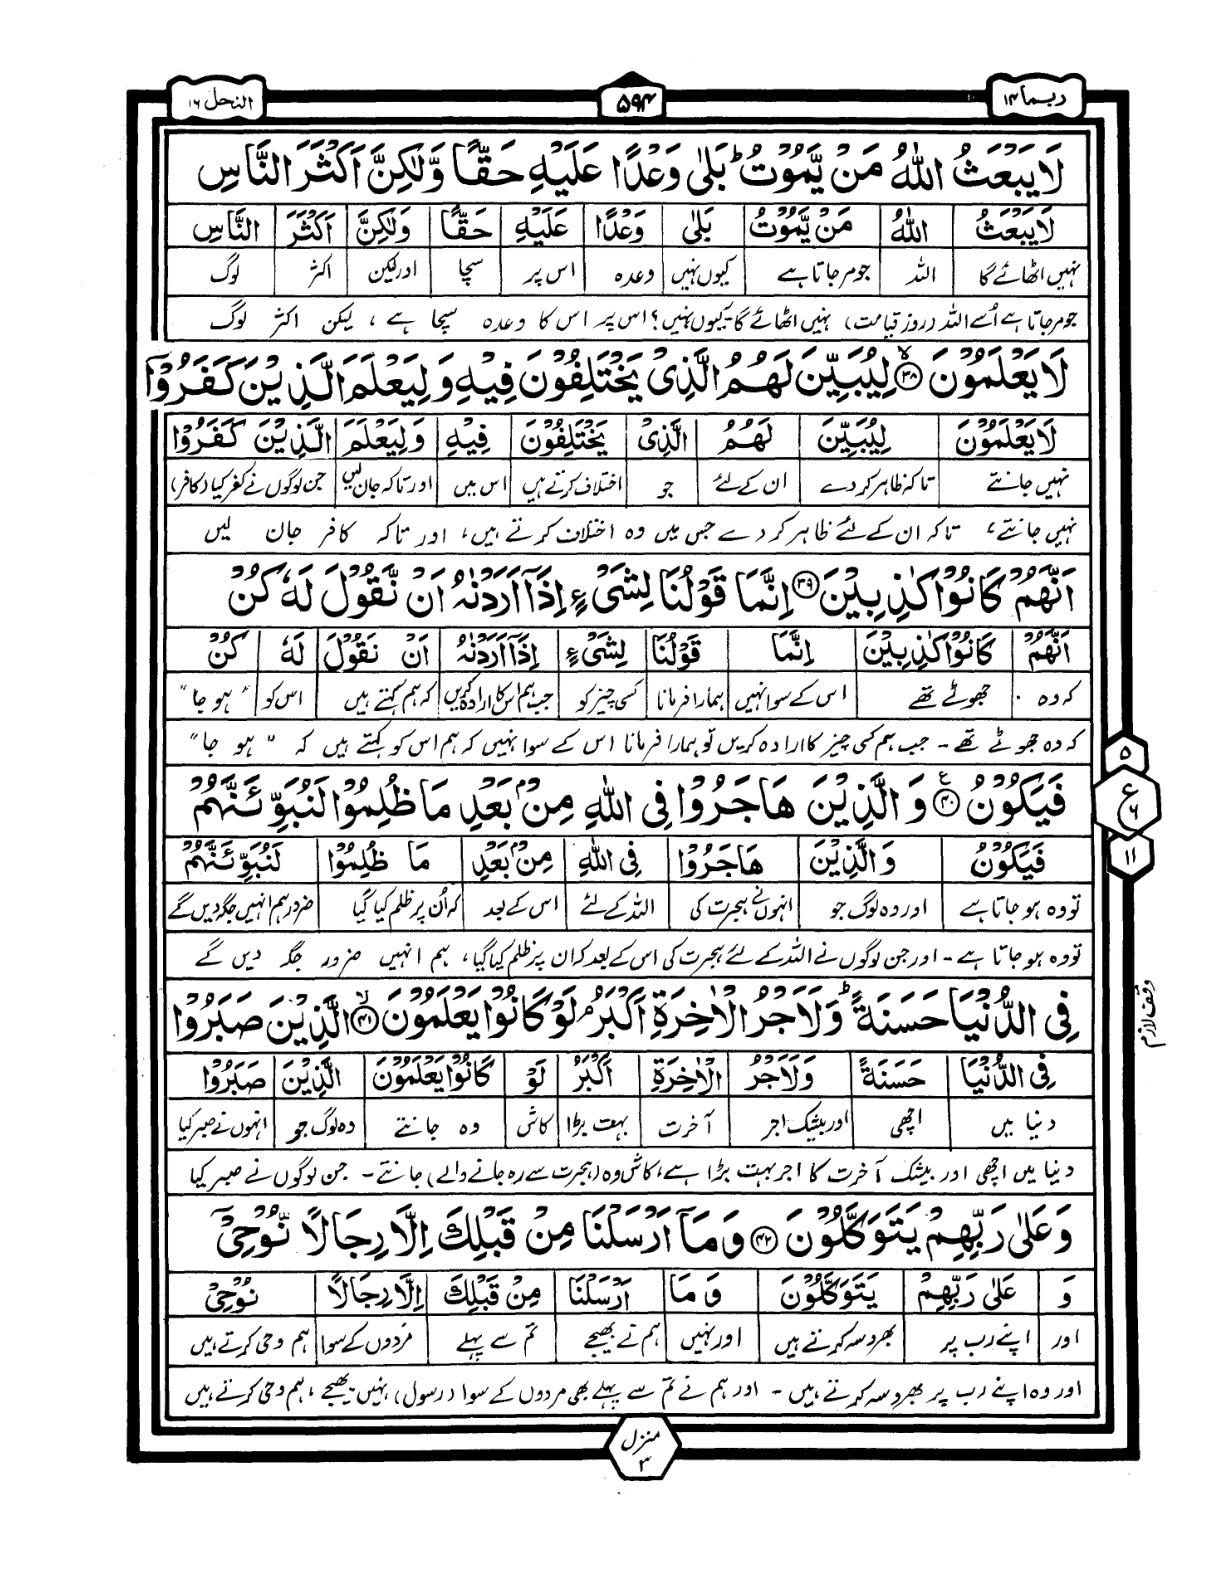 ربما ۱۴
۵۹۴
النحل ۱۶
لَا یَبْعَثُ اللّٰهُ مَنْ یَّمُوْتُ ؕ بَلٰی وَعْدًا عَلَیْهِ حَقًّا وَّلٰكِنَّ اَكْثَرَ النَّاسِ
لَا یَبْعَثُ اللّٰهُ مَنْ یَّمُوْتُ بَلٰی وَعْدًا عَلَیْهِ حَقًّا وَلٰكِنَّ اَكْثَرَ النَّاسِ
نہیں اٹھائے گا اللہ جو مر جاتا ہے کیوں نہیں وعدہ اس پر سچا اور لیکن اکثر لوگ
جو مر جاتا ہے اُسے اللہ (روز قیامت) نہیں اٹھائے گا۔ کیوں نہیں؟ اس پر اس کا وعدہ سچا ہے، لیکن اکثر لوگ
لَا یَعْلَمُوْنَ ﴿۳۸﴾ۙ لِیُبَیِّنَ لَهُمُ الَّذِیْ یَخْتَلِفُوْنَ فِیْهِ وَلِیَعْلَمَ الَّذِیْنَ كَفَرُوْۤا
لَا یَعْلَمُوْنَ لِیُبَیِّنَ لَهُمُ الَّذِیْ یَخْتَلِفُوْنَ فِیْهِ وَلِیَعْلَمَ الَّذِیْنَ كَفَرُوْا
نہیں جانتے تاکہ ظاہر کر دے ان کے لئے جو اختلاف کرتے ہیں اس میں اور تاکہ جان لیں جن لوگوں نے کفر کیا (کافر)
نہیں جانتے، تاکہ ان کے لئے ظاہر کر دے جس میں وہ اختلاف کرتے ہیں، اور تاکہ کافر جان لیں
اَنَّهُمْ كَانُوْا كٰذِبِیْنَ ﴿۳۹﴾ اِنَّمَا قَوْلُنَا لِشَیْءٍ اِذَاۤ اَرَدْنٰهُ اَنْ نَّقُوْلَ لَهٗ كُنْ
اَنَّهُمْ كَانُوْا كٰذِبِیْنَ اِنَّمَا قَوْلُنَا لِشَیْءٍ اِذَاۤ اَرَدْنٰهُ اَنْ نَقُوْلَ لَهٗ كُنْ
کہ وہ جھوٹے تھے اس کے سوا نہیں ہمارا فرمانا کسی چیز کو جب ہم اس کا ارادہ کریں کہ ہم کہتے ہیں اس کو "ہو جا"
کہ وہ جھوٹے تھے۔ جب ہم کسی چیز کا ارادہ کریں تو ہمارا فرمانا اس کے سوا نہیں کہ ہم اس کو کہتے ہیں کہ "ہو جا"
فَیَكُوْنُ ﴿۴۰﴾ۧ وَالَّذِیْنَ هَاجَرُوْا فِی اللّٰهِ مِنْۢ بَعْدِ مَا ظُلِمُوْا لَنُبَوِّئَنَّهُمْ
فَیَكُوْنُ وَالَّذِیْنَ هَاجَرُوْا فِی اللّٰهِ مِنْۢ بَعْدِ مَا ظُلِمُوْا لَنُبَوِّئَنَّهُمْ
تو وہ ہو جاتا ہے اور وہ لوگ جو انہوں نے ہجرت کی اللہ کے لئے اس کے بعد کہ اُن پر ظلم کیا گیا ضرور ہم انہیں جگہ دیں گے
تو وہ ہو جاتا ہے۔ اور جن لوگوں نے اللہ کے لئے ہجرت کی اس کے بعد کہ ان پر ظلم کیا گیا، ہم انہیں ضرور جگہ دیں گے
۵
ع
۶
۱۱
فِی الدُّنْیَا حَسَنَةً ؕ وَلَاَجْرُ الْاٰخِرَةِ اَكْبَرُ ۘ لَوْ كَانُوْا یَعْلَمُوْنَ ﴿۴۱﴾ۙ الَّذِیْنَ صَبَرُوْا
وقف لازم
فِی الدُّنْیَا حَسَنَةً وَلَاَجْرُ الْاٰخِرَةِ اَكْبَرُ لَوْ كَانُوْا یَعْلَمُوْنَ الَّذِیْنَ صَبَرُوْا
دنیا میں اچھی اور بیشک اجر آخرت بہت بڑا کاش وہ جانتے وہ لوگ جو انہوں نے صبر کیا
دنیا میں اچھی اور بیشک آخرت کا اجر بہت بڑا ہے، کاش وہ (ہجرت سے رہ جانے والے) جانتے۔ جن لوگوں نے صبر کیا
وَعَلٰی رَبِّهِمْ یَتَوَكَّلُوْنَ ﴿۴۲﴾ وَمَاۤ اَرْسَلْنَا مِنْ قَبْلِكَ اِلَّا رِجَالًا نُّوْحِیْۤ
وَ عَلٰی رَبِّهِمْ یَتَوَكَّلُوْنَ وَمَا اَرْسَلْنَا مِنْ قَبْلِكَ اِلَّا رِجَالًا نُوْحِیْ
اور اپنے رب پر بھروسہ کرتے ہیں اور نہیں ہم نے بھیجے تم سے پہلے مردوں کے سوا ہم وحی کرتے ہیں
اور وہ اپنے رب پر بھروسہ کرتے ہیں۔ اور ہم نے تم سے پہلے بھی مردوں کے سوا (رسول) نہیں بھیجے، ہم وحی کرتے ہیں
منزل ۳